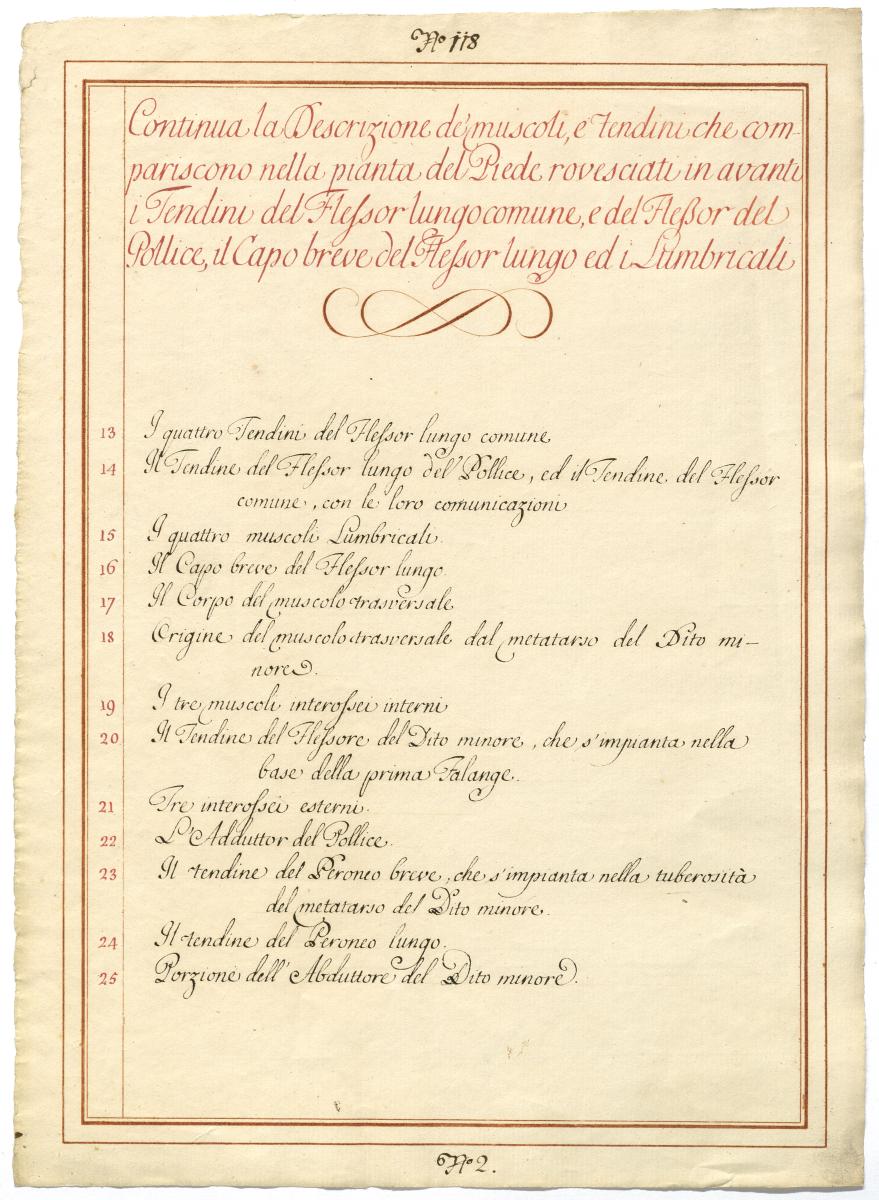 Nº 118
Continua la Descrizione de' muscoli, e Tendini che com-
pariscono nella pianta del Piede rovesciati in avanti
i Tendini del Flessor lungo comune, e del Fleßor del
Pollice, il Capo breve del Flessor lungo ed i Lumbricali
13 I quattro Tendini del Flessor lungo comune
14 Il Tendine del Flessor lungo del Pollice, ed il Tendine del Flessor
comune, con le loro comunicazioni
15 I quattro muscoli Lumbricali.
16 Il Capo breve del Flessor lungo.
17 Il Corpo del muscolo trasversale
18 Origine del muscolo trasversale dal metatarso del Dito mi-
nore.
19 I tre muscoli interossei interni
20 Il Tendine del Flessore del Dito minore, che s'impianta nella
base della prima Falange.
21 Tre interossei esterni.
22 L'Adduttor del Pollice.
23 Il tendine del Peroneo breve, che s'impianta nella tuberosità
del metatarso del Dito minore.
24 Il tendine del Peroneo lungo.
25 Porzione dell'Abduttore del Dito minore.
Nº 2.